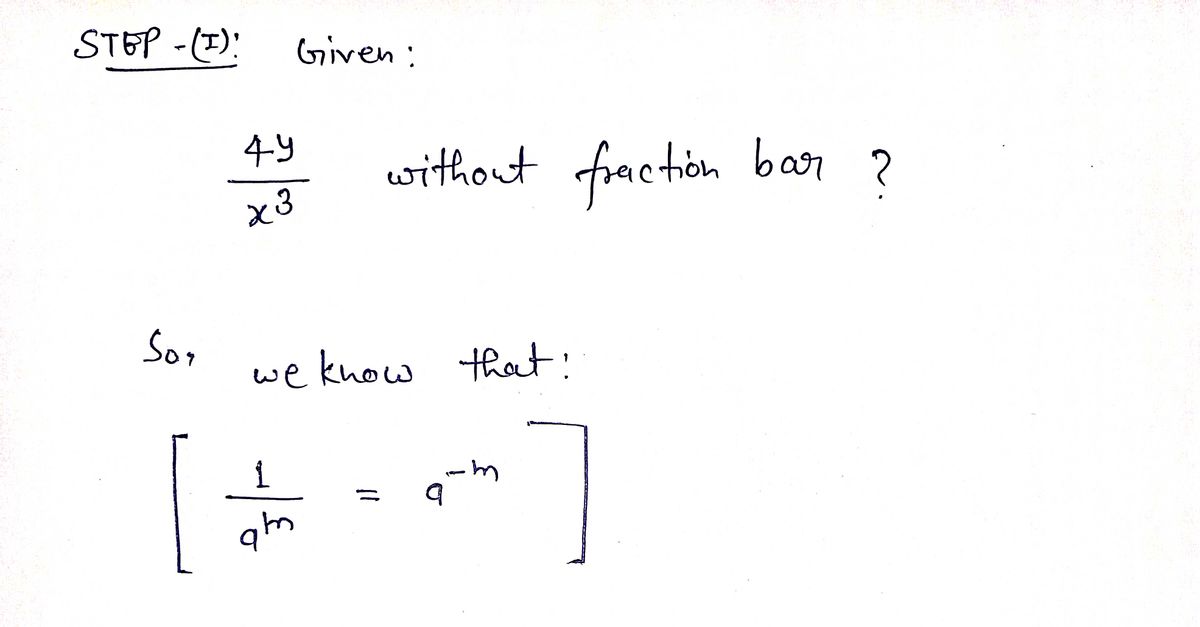 STEP -(I): Given:
4y
x³
without fraction bar ?
So,
we know that:
[ 1
a^m
= a^-m ]